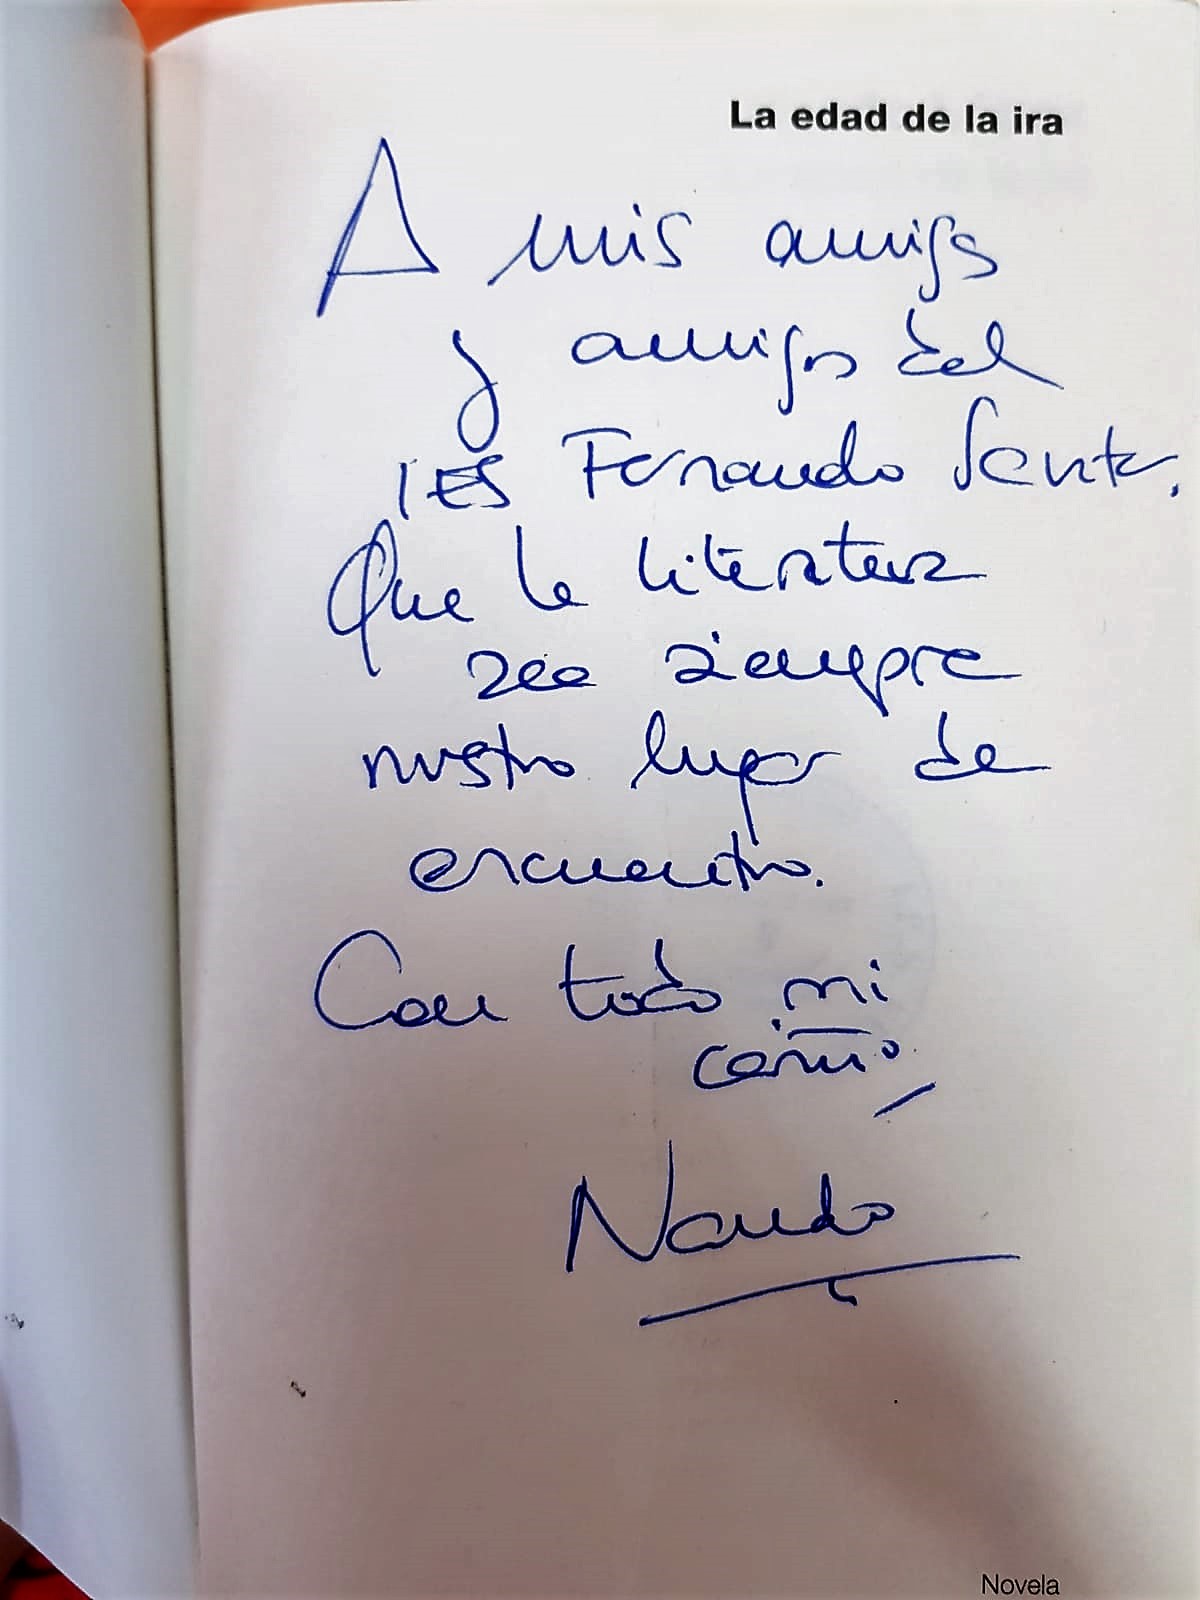 La edad de la ira
A mis amigas
y amigos del
IES Fernando Savater.
Que la literatura
sea siempre
nuestro lugar de
encuentro.
Con todo mi
cariño
Nando
Novela